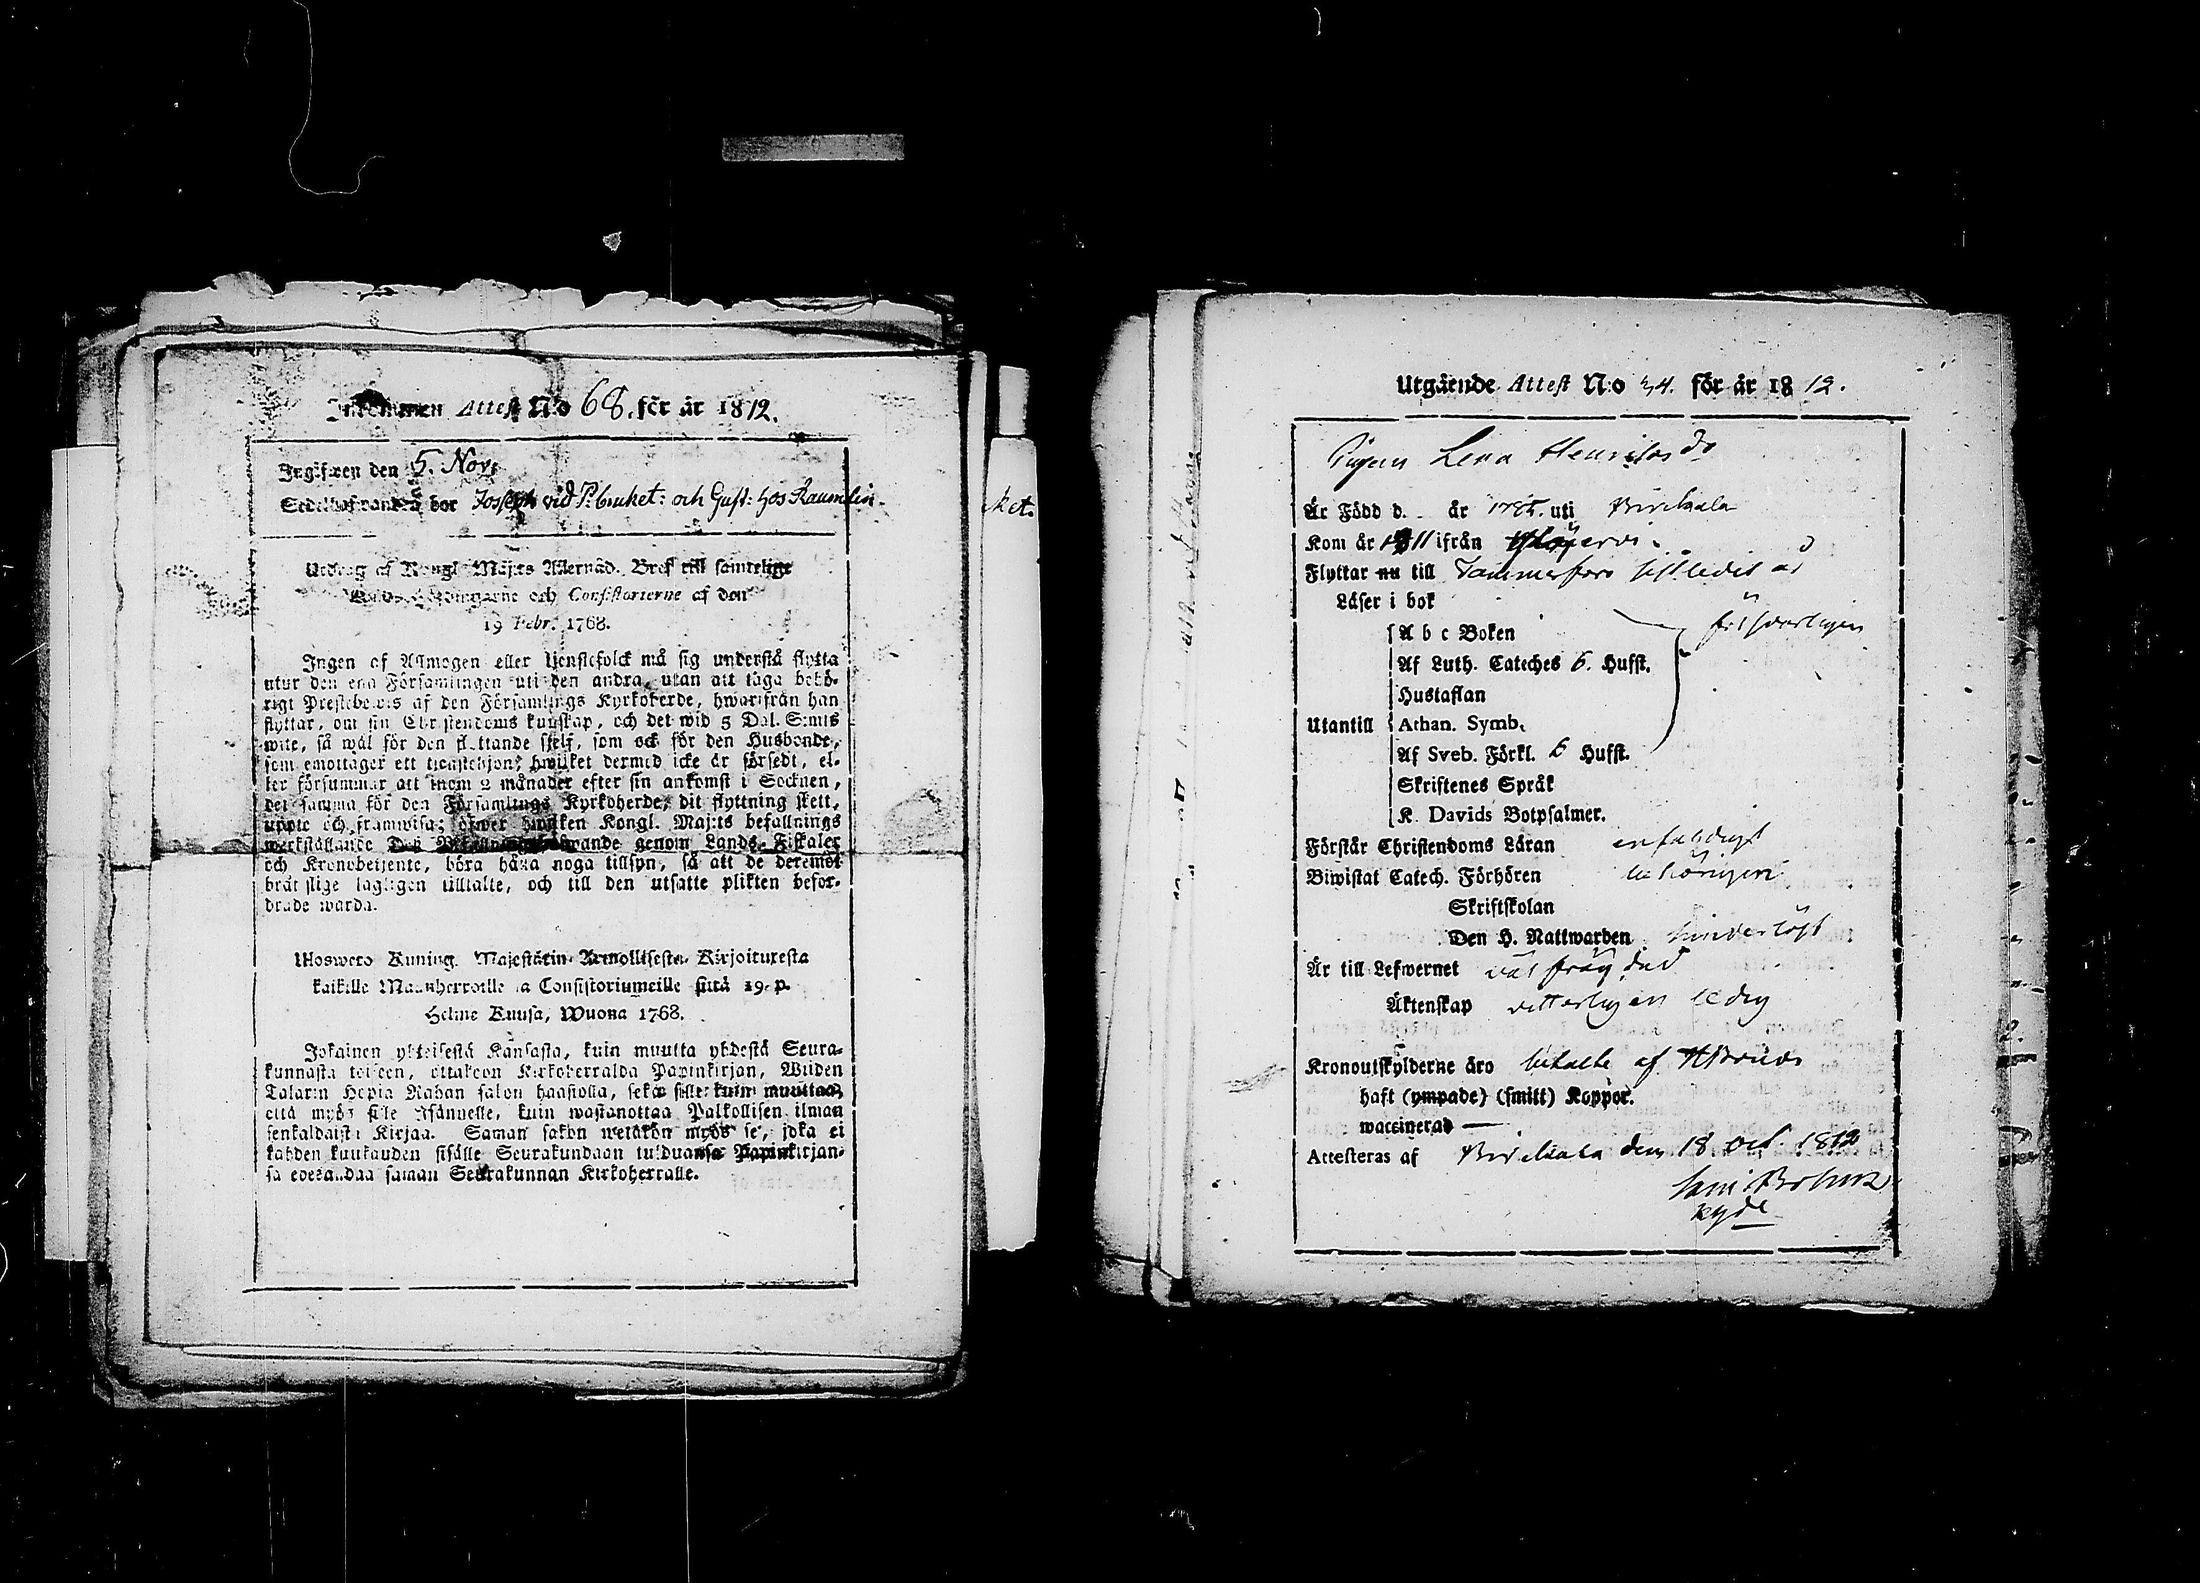 Inkommen Attest N:o 68. för år 1812.
Ingifven den 5. Nov:
Sedelhafvanden bor Joseph vid P:bruket: och Gust: hos Raumlin.
Utdrag af Kongl Maj:ts Allernåd. Bref till samtelige
och Consistorierne af den
19 Febr. 1768.
Ingen af Allmogen eller tjenstefolck må sig understå flytta
utur den ena Församlingen uti den andra, utan att taga behö-
rigt Prestebevis af den Församlings Kyrkoherde, hwarifrån han
flyttar, om sin Christendoms kunskap, och det wid 5 Dal. S:mts
wite, så wäl för den flyttande sjelf, som ock för den Husbonde,
som emottager ett tjenstehjon, hwilket dermed icke är försedt, el-
ler försummar att inom 2 månader efter sin ankomst i Socknen,
det samma för den Församlings Kyrkoherde, dit flyttning skett,
uppte och framwisa; öfwer hwilken Kongl. Maj:ts befallnings
werkställande genom Lands-Fiskaler
och Kronobetjente, böra hafa noga tillsyn, så att de deremot
bråtslige lagligen tilltalte, och till den utsatte plikten befor-
drade warda.
Uloswero Kuning. Majestätin Armollisesta Kirjoituxesta
kaikille Maanherroille ja Consistoriumeille siitä 19. p.
Helme Kuusa, Wuona 1768.
Jokainen yhteisestä Kansasta, kuin muutta yhdestä Seura-
kunnasta toiseen, ottakoon Kirkoherralda Papinkirjan, Wiiden
Talarin Hopia Rahan sakon haastolla, sekä sille kuin muuttaa,
että myös sille Isännelle, kuin wastanottaa Palkollisen ilman
senkaldaista Kirjaa. Saman sakon wetäkön myös se, joka ei
kahden kuukauden sisälle Seurakundaan tulduansa Papinkirjan-
sa edesandaa saman Seurakunnan Kirkoherralle.
ket.
Utgående Attest N:o 34. för år 1812.
Pigan Lena Henriksdr
Är Född d. år uti Birckala
Kom år 1811 ifrån
Flyttar nu till Tammerfors
Läser i bok
A b c Boken försvarligen
Af Luth. Cateches 6. Hufst.
Hustaflan
Utantill Athan. Symb.
Af Sveb. Förkl. 6 Hufst.
Skriftenes Språk
K. Davids Botpsalmer.
Förstår Christendoms Läran enfaldigt
Biwistat Catech. Förhören behörigen
Skriftskolan
Den H. Nattwarden hinderlöst
Är till Lefwernet wäl frägdad
Äktenskap ledig
Kronoutskylderne äro betalte af
haft (ympade) (smitt) Koppor.
waccinerad —
Attesteras af Birckala den 18 Oct. 1812